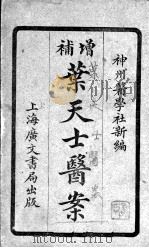 補增
神州醫學社新編
葉天士醫案
上海廣文書局出版